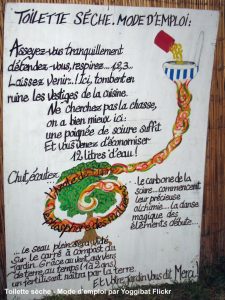 TOILETTE SÉCHE, MODE D'EMPLOI :
Asseyez-vous tranquillement
détendez-vous, respirez... 1,2,3...
Laissez Venir..! Ici, tombent en
ruine les Vestiges de la cuisine.
Ne cherchez pas la chasse,
on a bien mieux ici :
une poignée de sciure suffit
Et Vous venez d'économiser
12 litres d'eau !
Chut, écoutez...
le carbone de la
sciure... commencent
leur précieuse
alchimie... la danse
magique des
éléments débute...
... le seau plein sera vidé
Sur le carré à compost du
jardin. Grâce au vent, aux
vers de terre, au temps (1 à 2 ans)
un fertilisant naîtra par la terre.
Et Votre jardin Vous dit Merci !
Toilette sèche - Mode d'emploi par Yoggibat Flickr